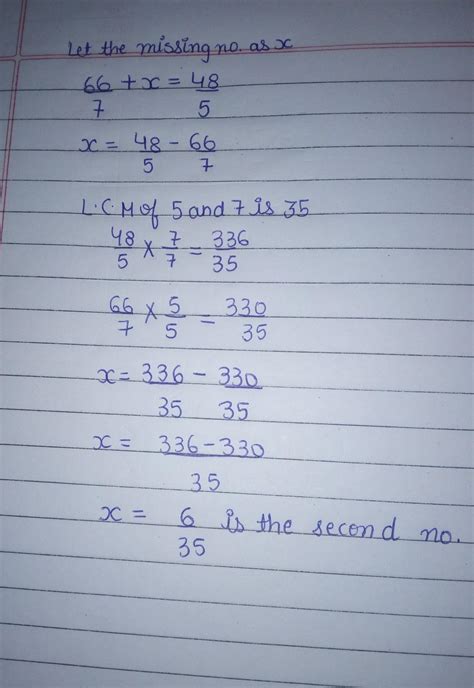 Let the missing no. as x
66/7 + x = 48/5
x = 48/5 - 66/7
L.C.M of 5 and 7 is 35
48/5 × 7/7 = 336/35
66/7 × 5/5 = 330/35
x = 336/35 - 330/35
x = 336-330/35
x = 6/35 is the second no.